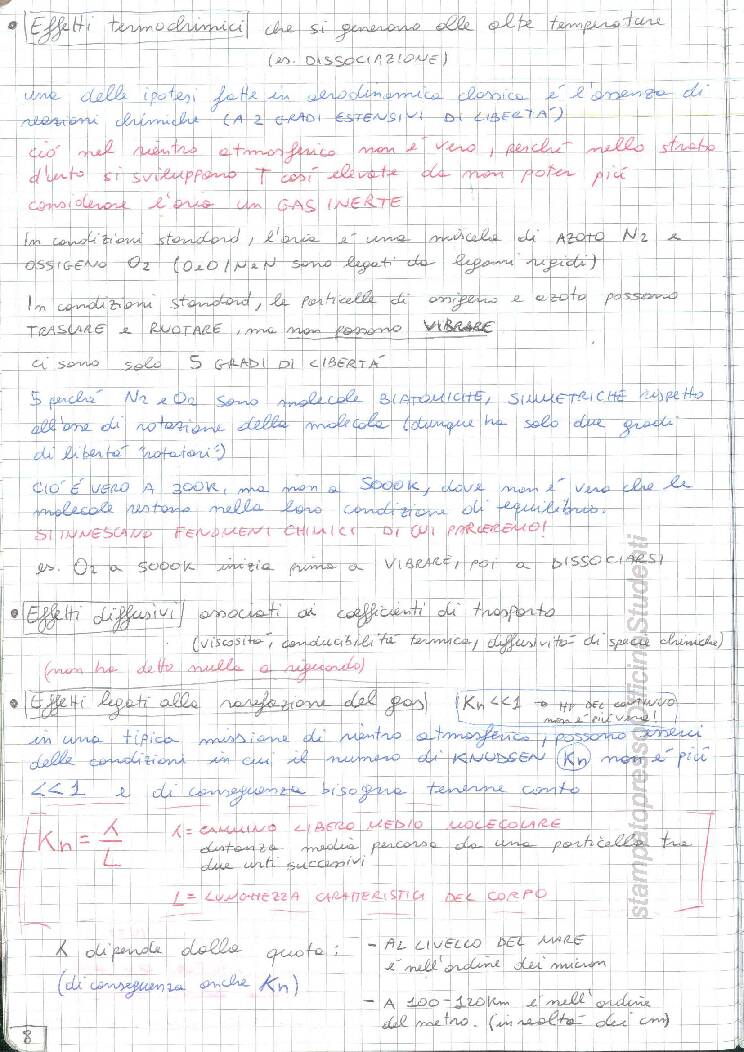 • Effetti termochimici che si generano alle alte temperature
(es. DISSOCIAZIONE)
una delle ipotesi fatte in aerodinamica classica è l'assenza di
reazioni chimiche (A 2 GRADI ESTENSIVI DI LIBERTÀ)
Ciò nel rientro atmosferico non è vero, perché nello strato
d'urto si sviluppano T così elevate da non poter più
considerare l'aria un GAS INERTE
In condizioni standard, l'aria è una miscela di AZOTO N2 e
OSSIGENO O2 (O e O / N e N sono legati da legami rigidi)
In condizioni standard, le particelle di ossigeno e azoto possono
TRASLARE e RUOTARE, ma non possono VIBRARE
ci sono solo 5 GRADI DI LIBERTÀ
5 perché N2 e O2 sono molecole BIATOMICHE, SIMMETRICHE rispetto
all'asse di rotazione della molecola (dunque ha solo due gradi
di libertà "rotazioni")
CIÒ È VERO A 300K, ma non a 5000K, dove non è vero che le
molecole restano nella loro condizione di equilibrio.
SI INNESCANO FENOMENI CHIMICI DI CUI PARLEREMO!
es. O2 a 5000K inizia prima a VIBRARE, poi a DISSOCIARSI
• Effetti diffusivi associati ai coefficienti di trasporto
(viscosità, conducibilità termica, diffusività di specie chimiche)
(non ha detto nulla a riguardo)
• Effetti legati alla rarefazione del gas Kn<<1 → HP DEL CONTINUO
non è più vera!
in una tipica missione di rientro atmosferico, possono esserci
delle condizioni in cui il numero di KNUDSEN (Kn) non è più
<<1 e di conseguenza bisogna tenerne conto
Kn = λ/L λ = CAMMINO LIBERO MEDIO MOLECOLARE
distanza media percorsa da una particella tra
due urti successivi
L = LUNGHEZZA CARATTERISTICA DEL CORPO
λ dipende dalla quota: - AL LIVELLO DEL MARE
(di conseguenza anche Kn) è nell'ordine dei micron
- A 100-120km è nell'ordine
del metro. (in realtà dei cm)
8
stampatopressoOfficinaStudenti